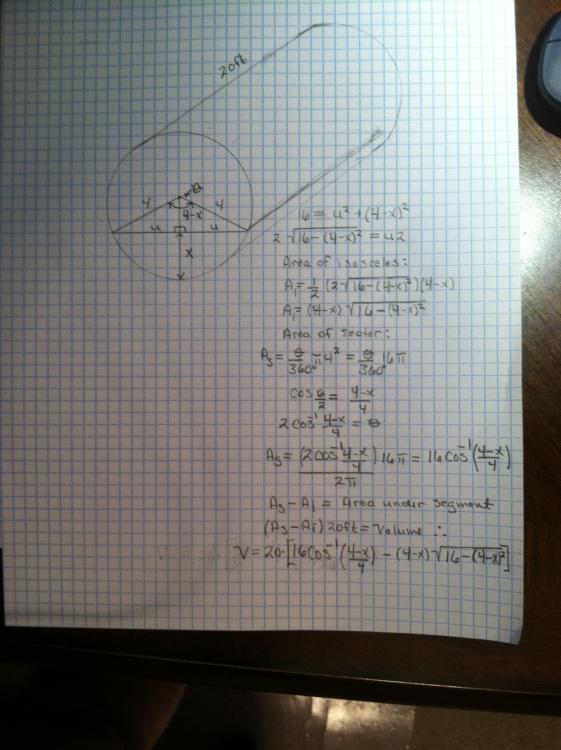 20ft
θ
4 4
4-x
u u
x
x
16 = u² + (4-x)²
2√16-(4-x)² = u2
Area of isosceles:
A₁ = 1/2 (2√16-(4-x)²)(4-x)
A₁ = (4-x)√16-(4-x)²
Area of sector:
As = θ/360° π4² = θ/360° 16π
cos θ/2 = 4-x/4
2cos⁻¹ 4-x/4 = θ
As = (2cos⁻¹ 4-x/4)/2π 16π = 16cos⁻¹(4-x/4)
As - Ai = Area under segment
(As-Ai) 20ft = Volume ∴
V = 20·[16cos⁻¹(4-x/4) - (4-x)√16-(4-x)²]